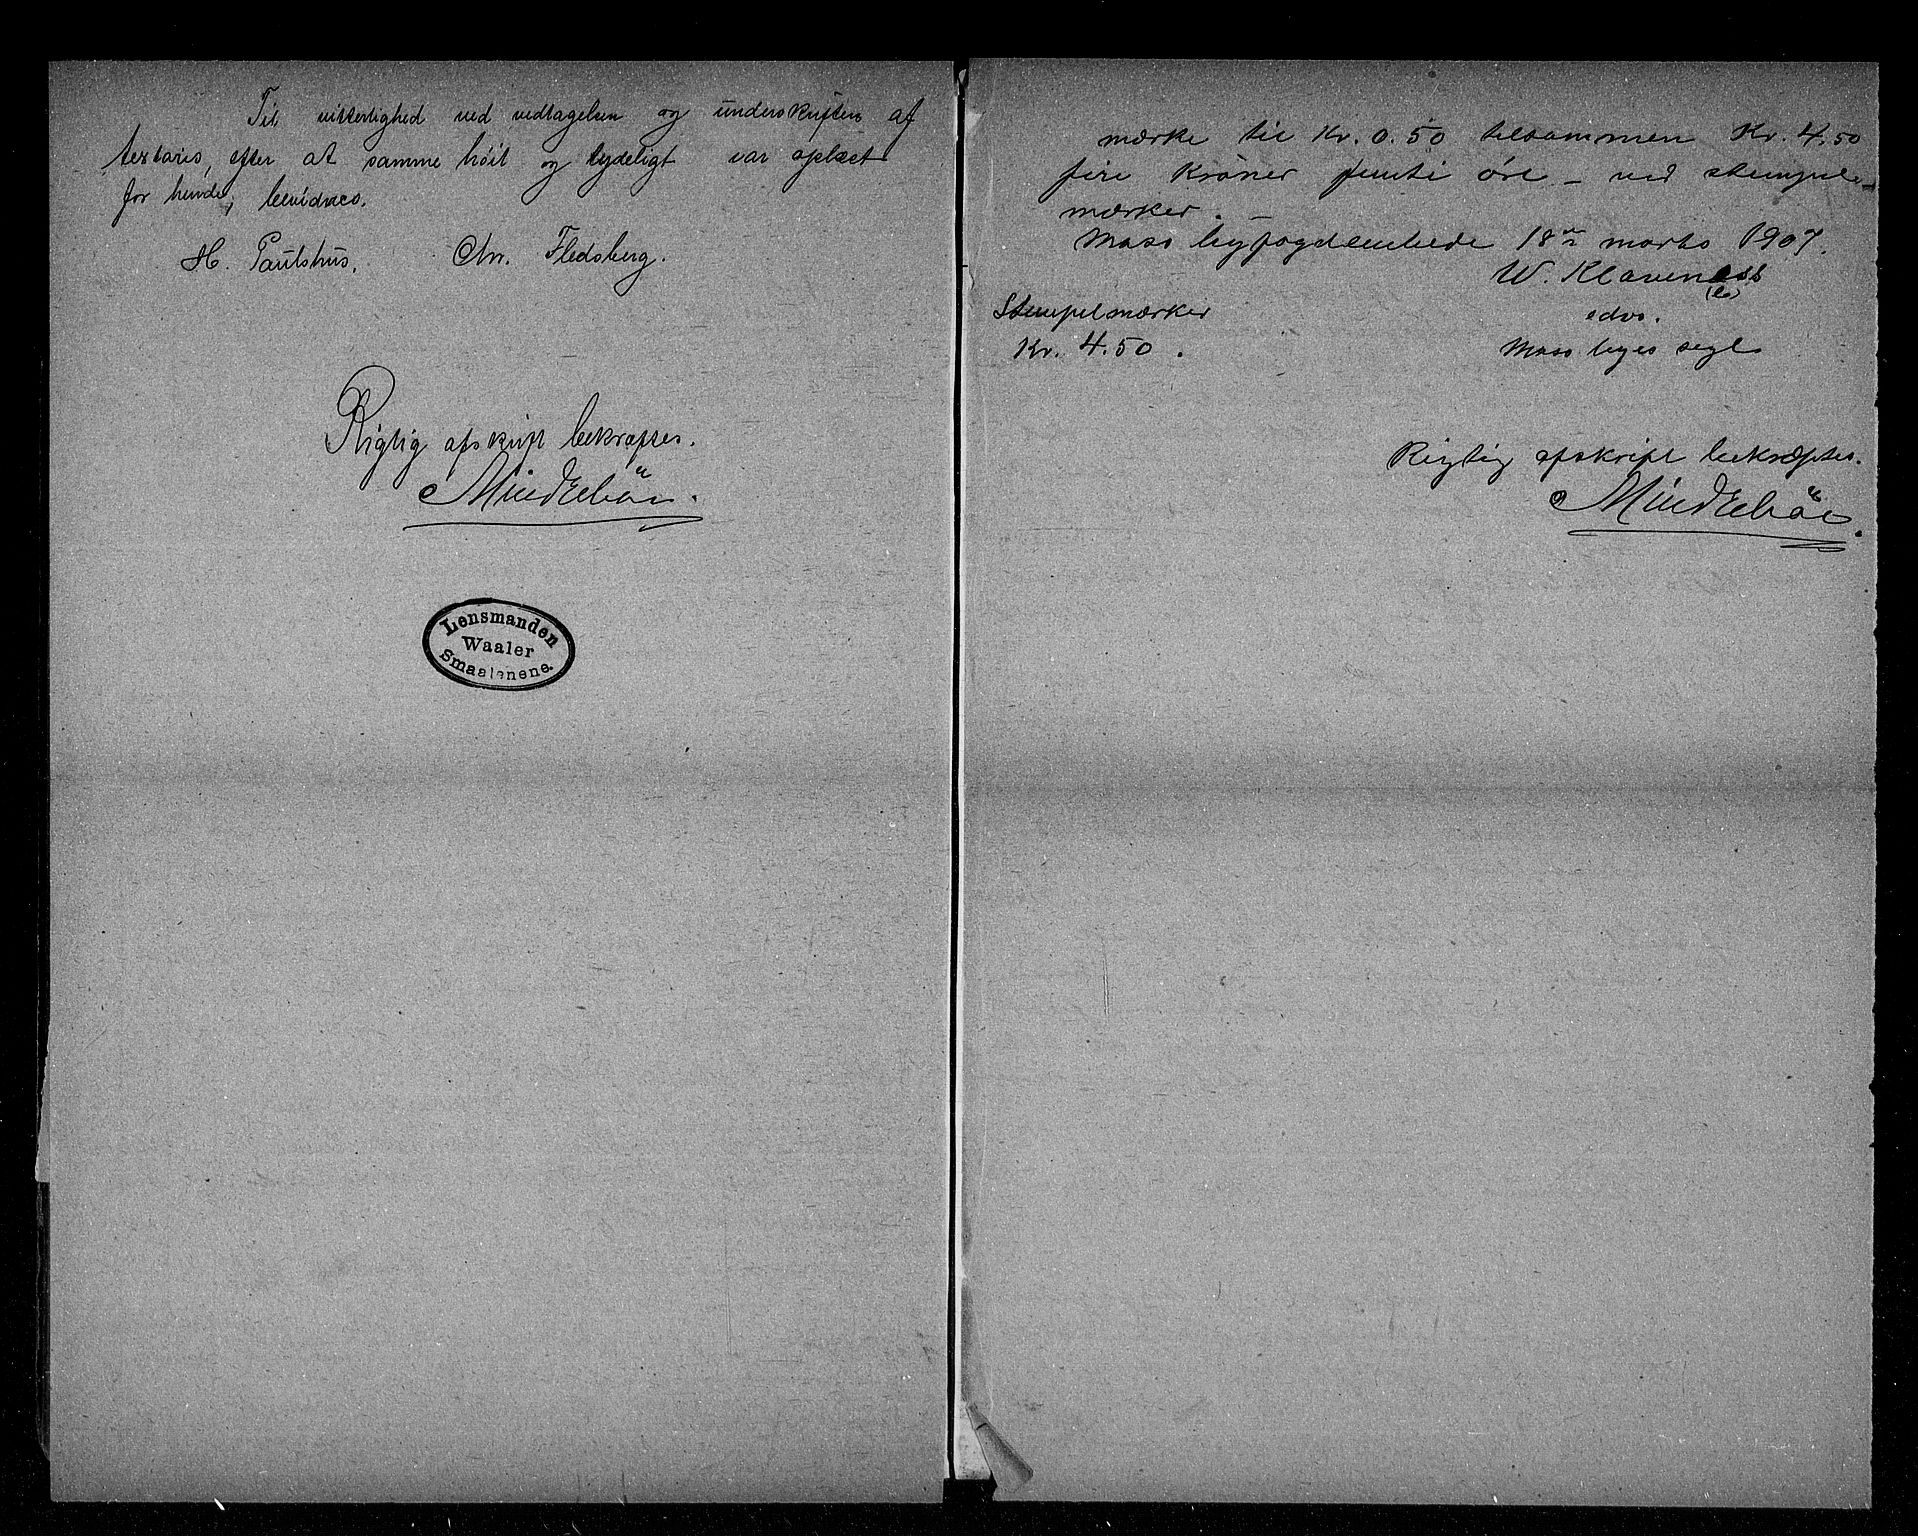 Til vitterlighed ved vedtagelsen og underskriften af
testatris, efter at samme höit og tydeligt var oplæst
for hende, bevidnes.
H. Paulshus. Chr. Fledsberg.
Rigtig afskrift bekræftes.
Mindebön.
Lensmanden
Waaler
Smaalenene.
mærke til Kr. 0.50 tilsammen Kr. 4.50
fire kroner femti öre – ved stempel-
mærker. –
Moss byfogdembede 18de marts 1907.
W. Klaveness
edvo.
Stempelmærker
Kr. 4.50.
Moss byes segl
Rigtig afskrift bekræftes.
Mindebön.